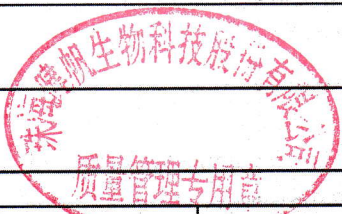 帆生物科技股份有限公司
质量管理专用章